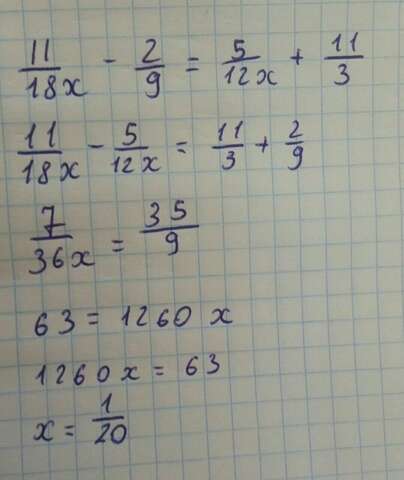 11/18x - 2/9 = 5/12x + 11/3
11/18x - 5/12x = 11/3 + 2/9
7/36x = 35/9
63 = 1260x
1260x = 63
x = 1/20